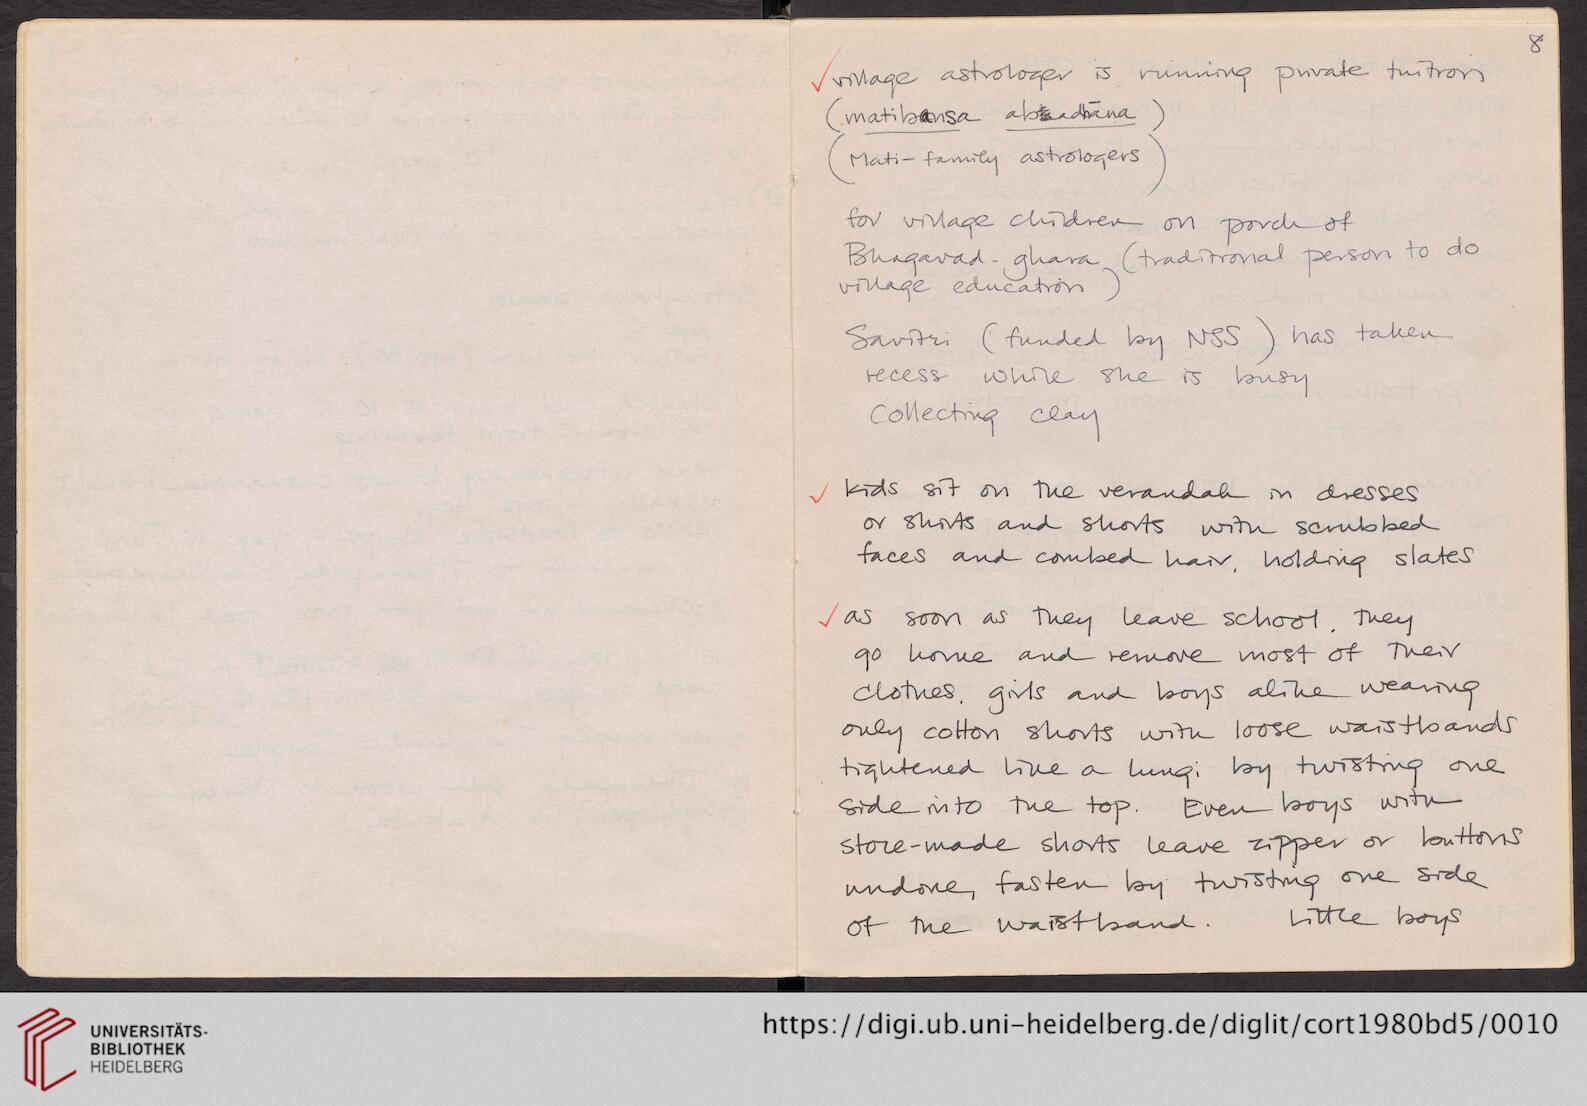 8
village astrologer is running private tuition
(matibansa
(Mati-family astrologers)
for village children on porch of
Bhagavad-ghara (traditional person to do
village education)
Savitri (funded by NSS) has taken
recess while she is busy
collecting clay
kids sit on the verandah in dresses
or shirts and shorts with scrubbed
faces and combed hair, holding slates
as soon as they leave school, they
go home and remove most of their
clothes, girls and boys alike wearing
only cotton shorts with loose waistbands
tightened like a lungi by twisting one
side into the top. Even boys with
store-made shorts leave zipper or buttons
undone, fasten by twisting one side
of the waistband. Little boys
UNIVERSITÄTS-
BIBLIOTHEK
HEIDELBERG
https://digi.ub.uni-heidelberg.de/diglit/cort1980bd5/0010